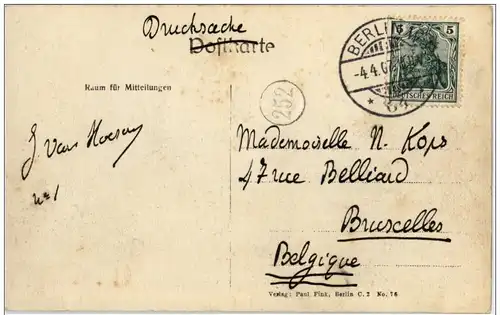 Drucksache
Postkarte
BERLIN
5 5
-4.4.07
DEUTSCHES REICH
* 64
Raum für Mitteilungen
252
J. Van
No 1
Mademoiselle N. Kops
47 rue Belliard
Bruxelles
Belgique
Verlag: Paul Fink, Berlin C. 2 No. 76